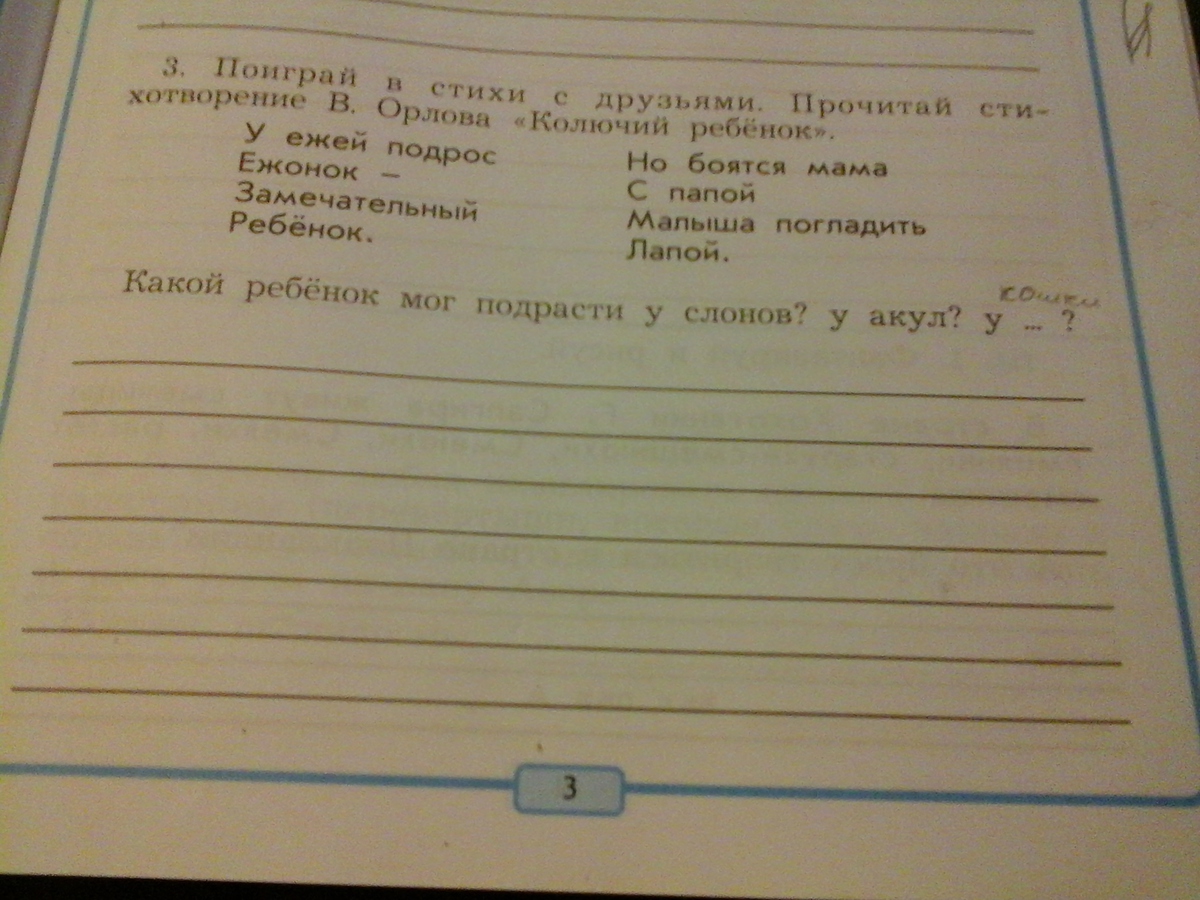 3. Поиграй в стихи с друзьями. Прочитай сти-
хотворение В. Орлова «Колючий ребёнок».
У ежей подрос
Ежонок –
Замечательный
Ребёнок.
Но боятся мама
С папой
Малыша погладить
Лапой.
кошки
Какой ребёнок мог подрасти у слонов? у акул? у ... ?
3